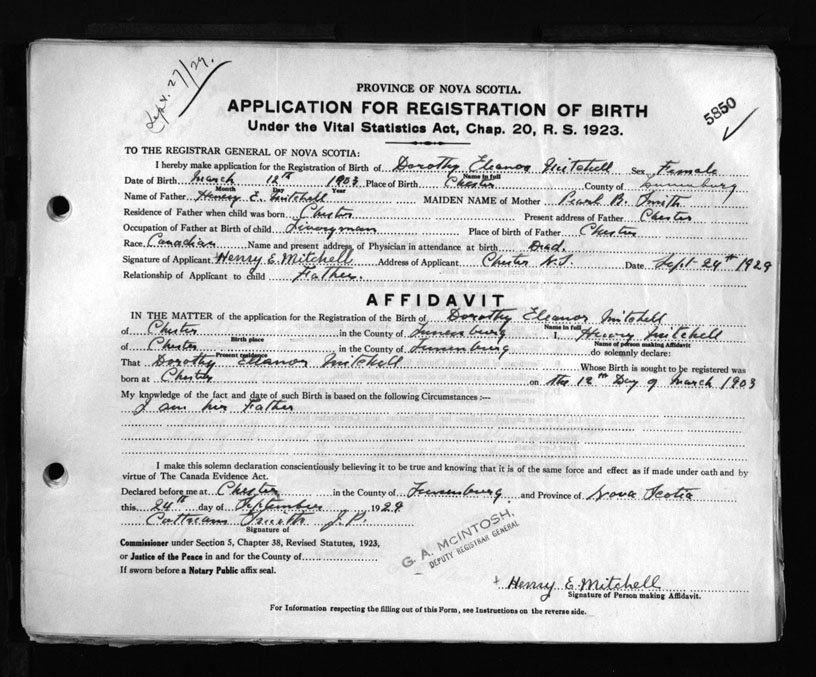 Sept. 27/29.
5850
PROVINCE OF NOVA SCOTIA.
APPLICATION FOR REGISTRATION OF BIRTH
Under the Vital Statistics Act, Chap. 20, R. S. 1923.
TO THE REGISTRAR GENERAL OF NOVA SCOTIA:
I hereby make application for the Registration of Birth of Dorothy Eleanor Mitchell Sex Female
Name in full
Date of Birth March 12th 1903 Place of Birth Chester County of Lunenburg
Month Day Year
Name of Father Henry E. Mitchell MAIDEN NAME of Mother Pearl B. Smith
Residence of Father when child was born Chester Present address of Father Chester
Occupation of Father at Birth of child Liveryman Place of birth of Father Chester
Race Canadian Name and present address of Physician in attendance at birth Dead.
Signature of Applicant Henry E. Mitchell Address of Applicant Chester N.S. Date Sept 24th 1929
Relationship of Applicant to child Father.
AFFIDAVIT
IN THE MATTER of the application for the Registration of the Birth of Dorothy Eleanor Mitchell
Name in full
of Chester in the County of Lunenburg I, Henry Mitchell
Birth place Name of person making Affidavit
of Chester in the County of Lunenburg do solemnly declare:
Present residence
That Dorothy Eleanor Mitchell Whose Birth is sought to be registered was
born at Chester on the 12th Day of March 1903
My knowledge of the fact and date of such Birth is based on the following Circumstances :—
I am her Father
I make this solemn declaration conscientiously believing it to be true and knowing that it is of the same force and effect as if made under oath and by
virtue of The Canada Evidence Act.
Declared before me at Chester in the County of Lunenburg and Province of Nova Scotia
this 24th day of September 1929
Smith J.P.
Signature of
Commissioner under Section 5, Chapter 38, Revised Statutes, 1923,
or Justice of the Peace in and for the County of
If sworn before a Notary Public affix seal.
G. A. McINTOSH,
DEPUTY REGISTRAR GENERAL
Henry E. Mitchell
Signature of Person making Affidavit.
For Information respecting the filling out of this Form, see Instructions on the reverse side.